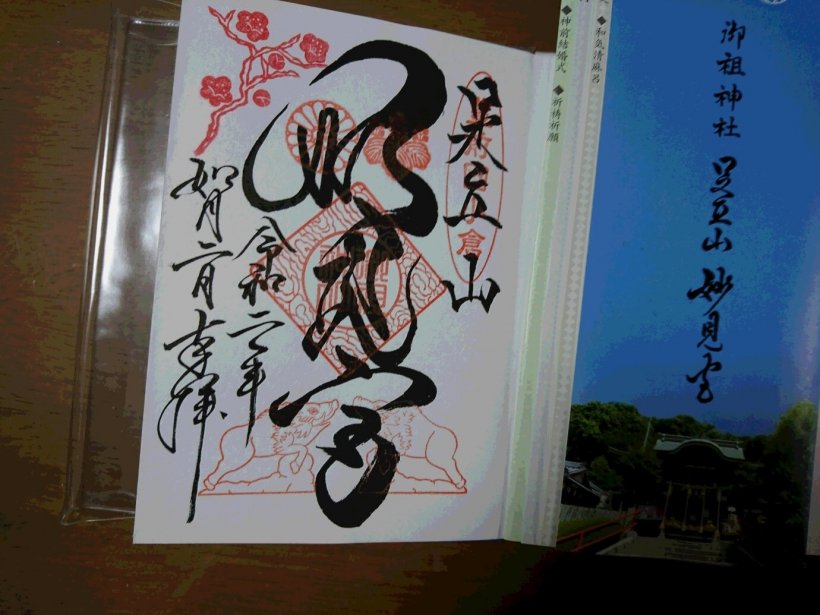 足立山
妙見宮
令和二年
如月二月奉拝
◆和気清麻呂
◆神前結婚式 ◆祈祷祈願
御祖神社 足立山 妙見宮